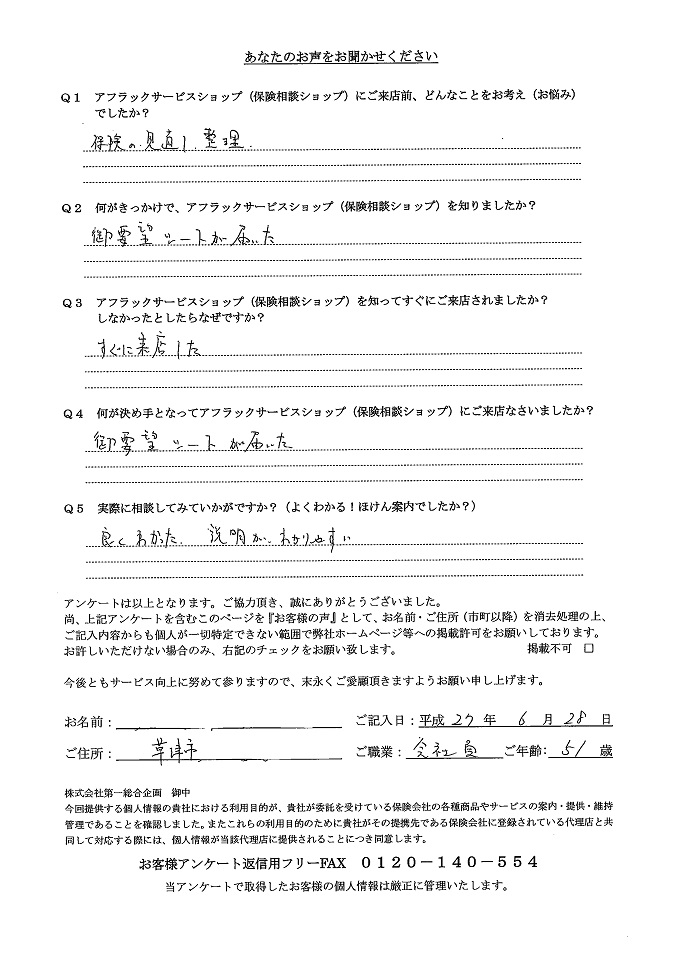 あなたのお声をお聞かせください
Q1 アフラックサービスショップ(保険相談ショップ)にご来店前、どんなことをお考え(お悩み)
でしたか?
保険の見直し、整理
Q2 何がきっかけで、アフラックサービスショップ(保険相談ショップ)を知りましたか?
御要望シートが届いた
Q3 アフラックサービスショップ(保険相談ショップ)を知ってすぐにご来店されましたか?
しなかったとしたらなぜですか?
すぐに来店した
Q4 何が決め手となってアフラックサービスショップ(保険相談ショップ)にご来店なさいましたか?
御要望シートが届いた
Q5 実際に相談してみていかがですか?(よくわかる!ほけん案内でしたか?)
良くわかった 説明が、わかりやすい
アンケートは以上となります。ご協力頂き、誠にありがとうございました。
尚、上記アンケートを含むこのページを『お客様の声』として、お名前・ご住所(市町以降)を消去処理の上、
ご記入内容からも個人が一切特定できない範囲で弊社ホームページ等への掲載許可をお願いしております。
お許しいただけない場合のみ、右記のチェックをお願い致します。 掲載不可 □
今後ともサービス向上に努めて参りますので、末永くご愛顧頂きますようお願い申し上げます。
お名前: ご記入日:平成 27 年 6 月 28 日
ご住所: 草津市 ご職業: 会社員 ご年齢: 51 歳
株式会社第一総合企画 御中
今回提供する個人情報の貴社における利用目的が、貴社が委託を受けている保険会社の各種商品やサービスの案内・提供・維持
管理であることを確認しました。またこれらの利用目的のために貴社がその提携先である保険会社に登録されている代理店と共
同して対応する際には、個人情報が当該代理店に提供されることにつき同意します。
お客様アンケート返信用フリーFAX 0120-140-554
当アンケートで取得したお客様の個人情報は厳正に管理いたします。